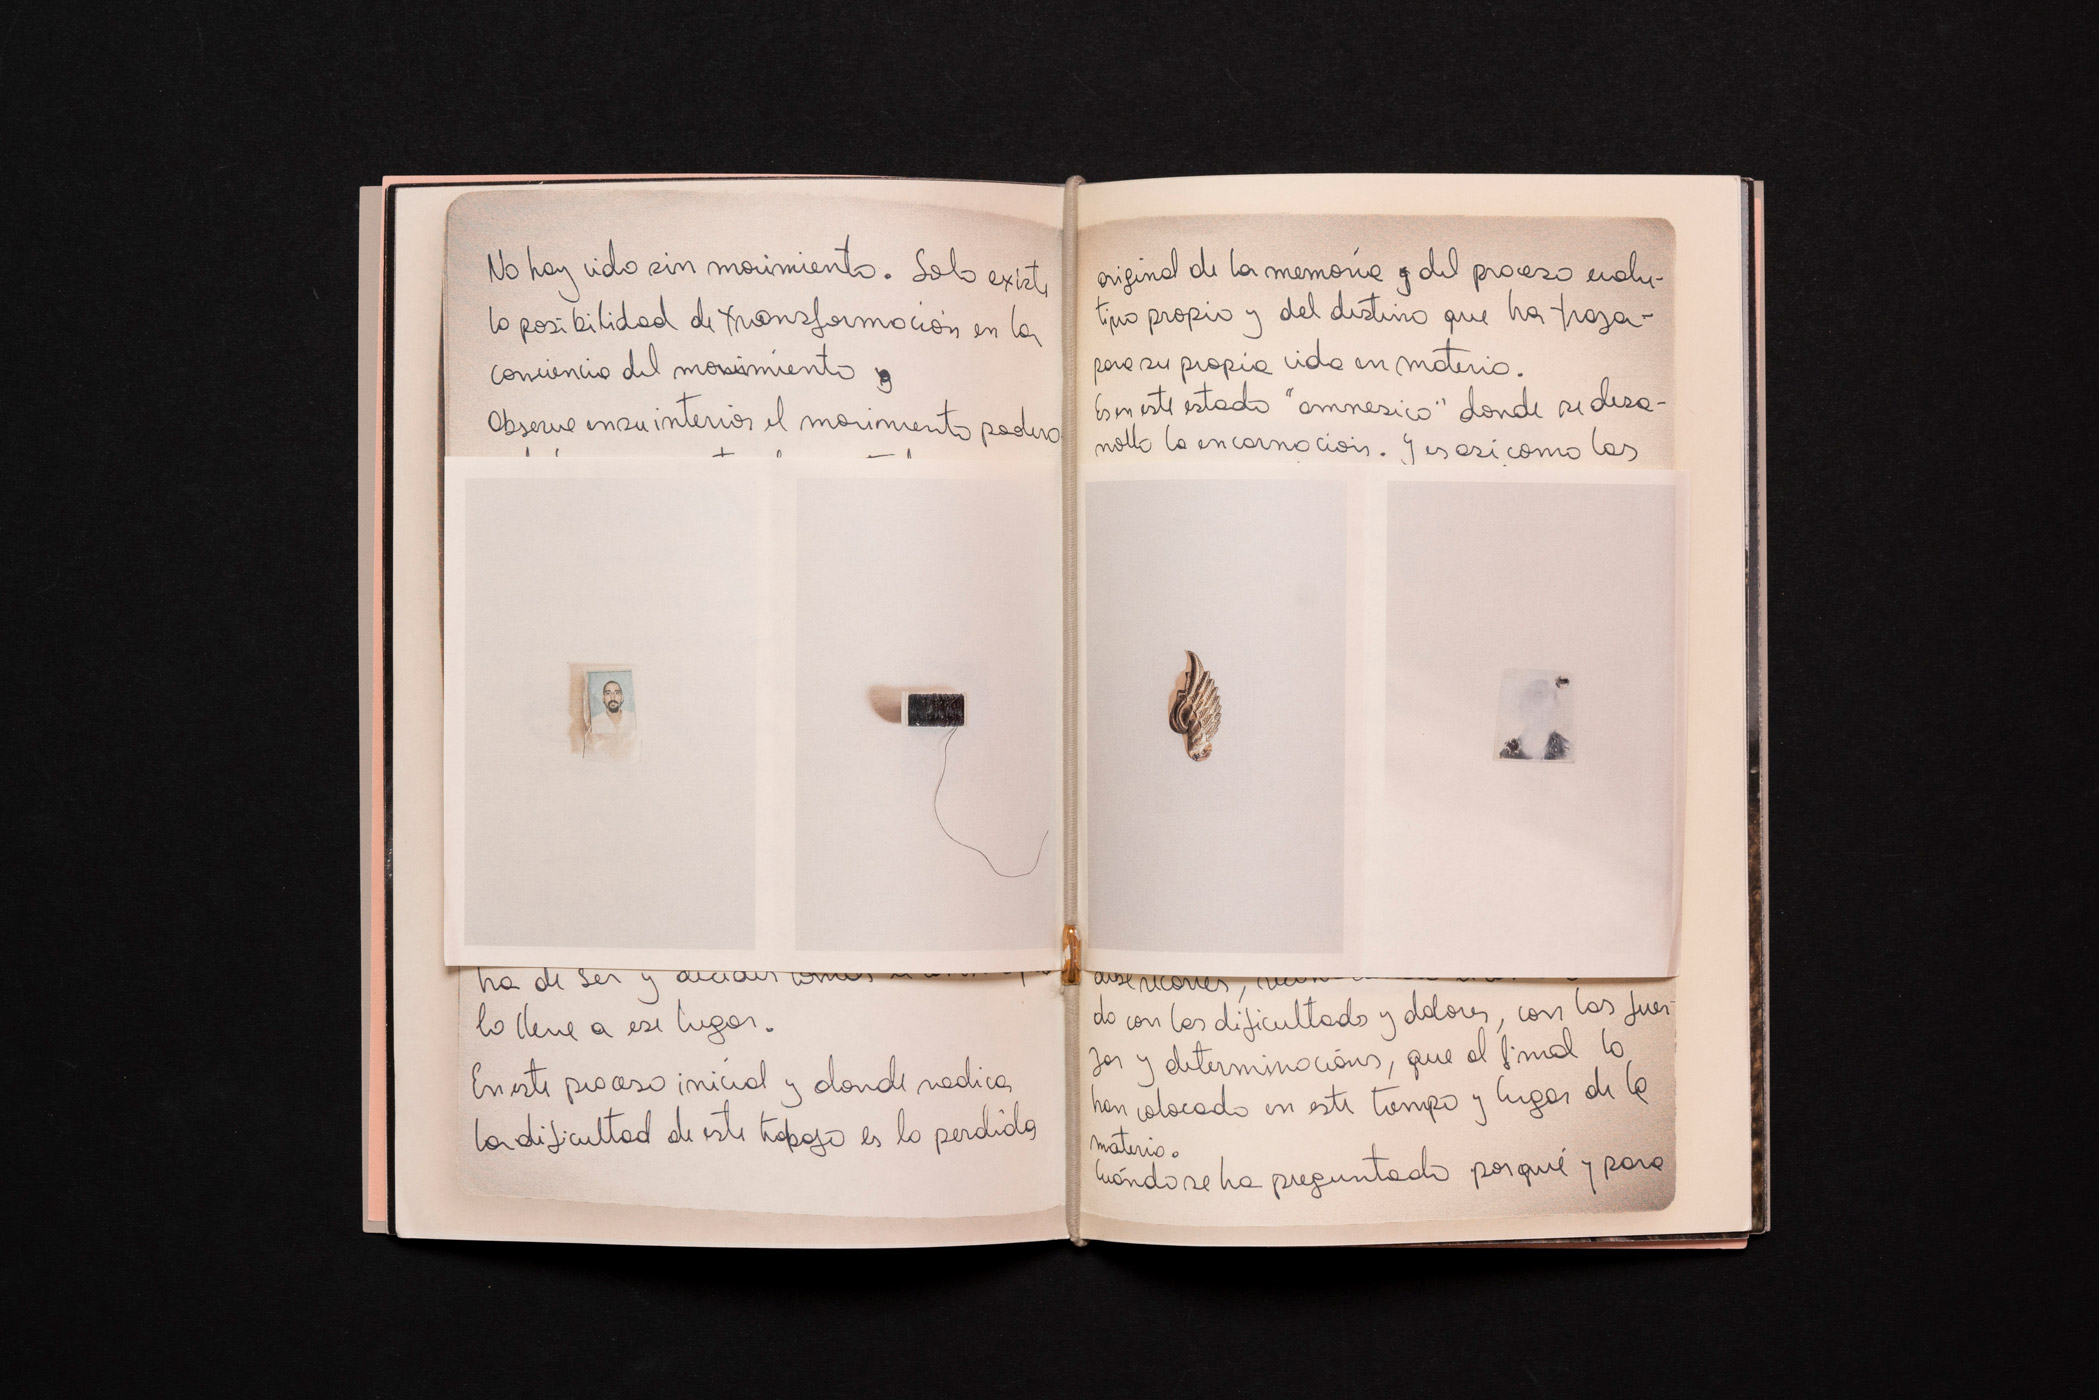 No hay vida sin movimiento. Solo existe
la posibilidad de transformación en la
conciencia del movimiento y
Observe en su interior el movimiento podero
ha de ser y decidir
lo lleve a ese lugar.
En este proceso inicial y donde radica
la dificultad de este trabajo es la perdida
original de la memoria y del proceso evolu-
tivo propio y del destino que ha traza-
para su propia vida en materia.
Es en este estado "amnesico" donde se desa-
rrollo la encarnación. Y es así como las
do con las dificultado y dolores, con las fuer-
zas y determinacións, que al final lo
han colocado en este tiempo y lugar de la
materia.
Cuándo se ha preguntado porqué y para